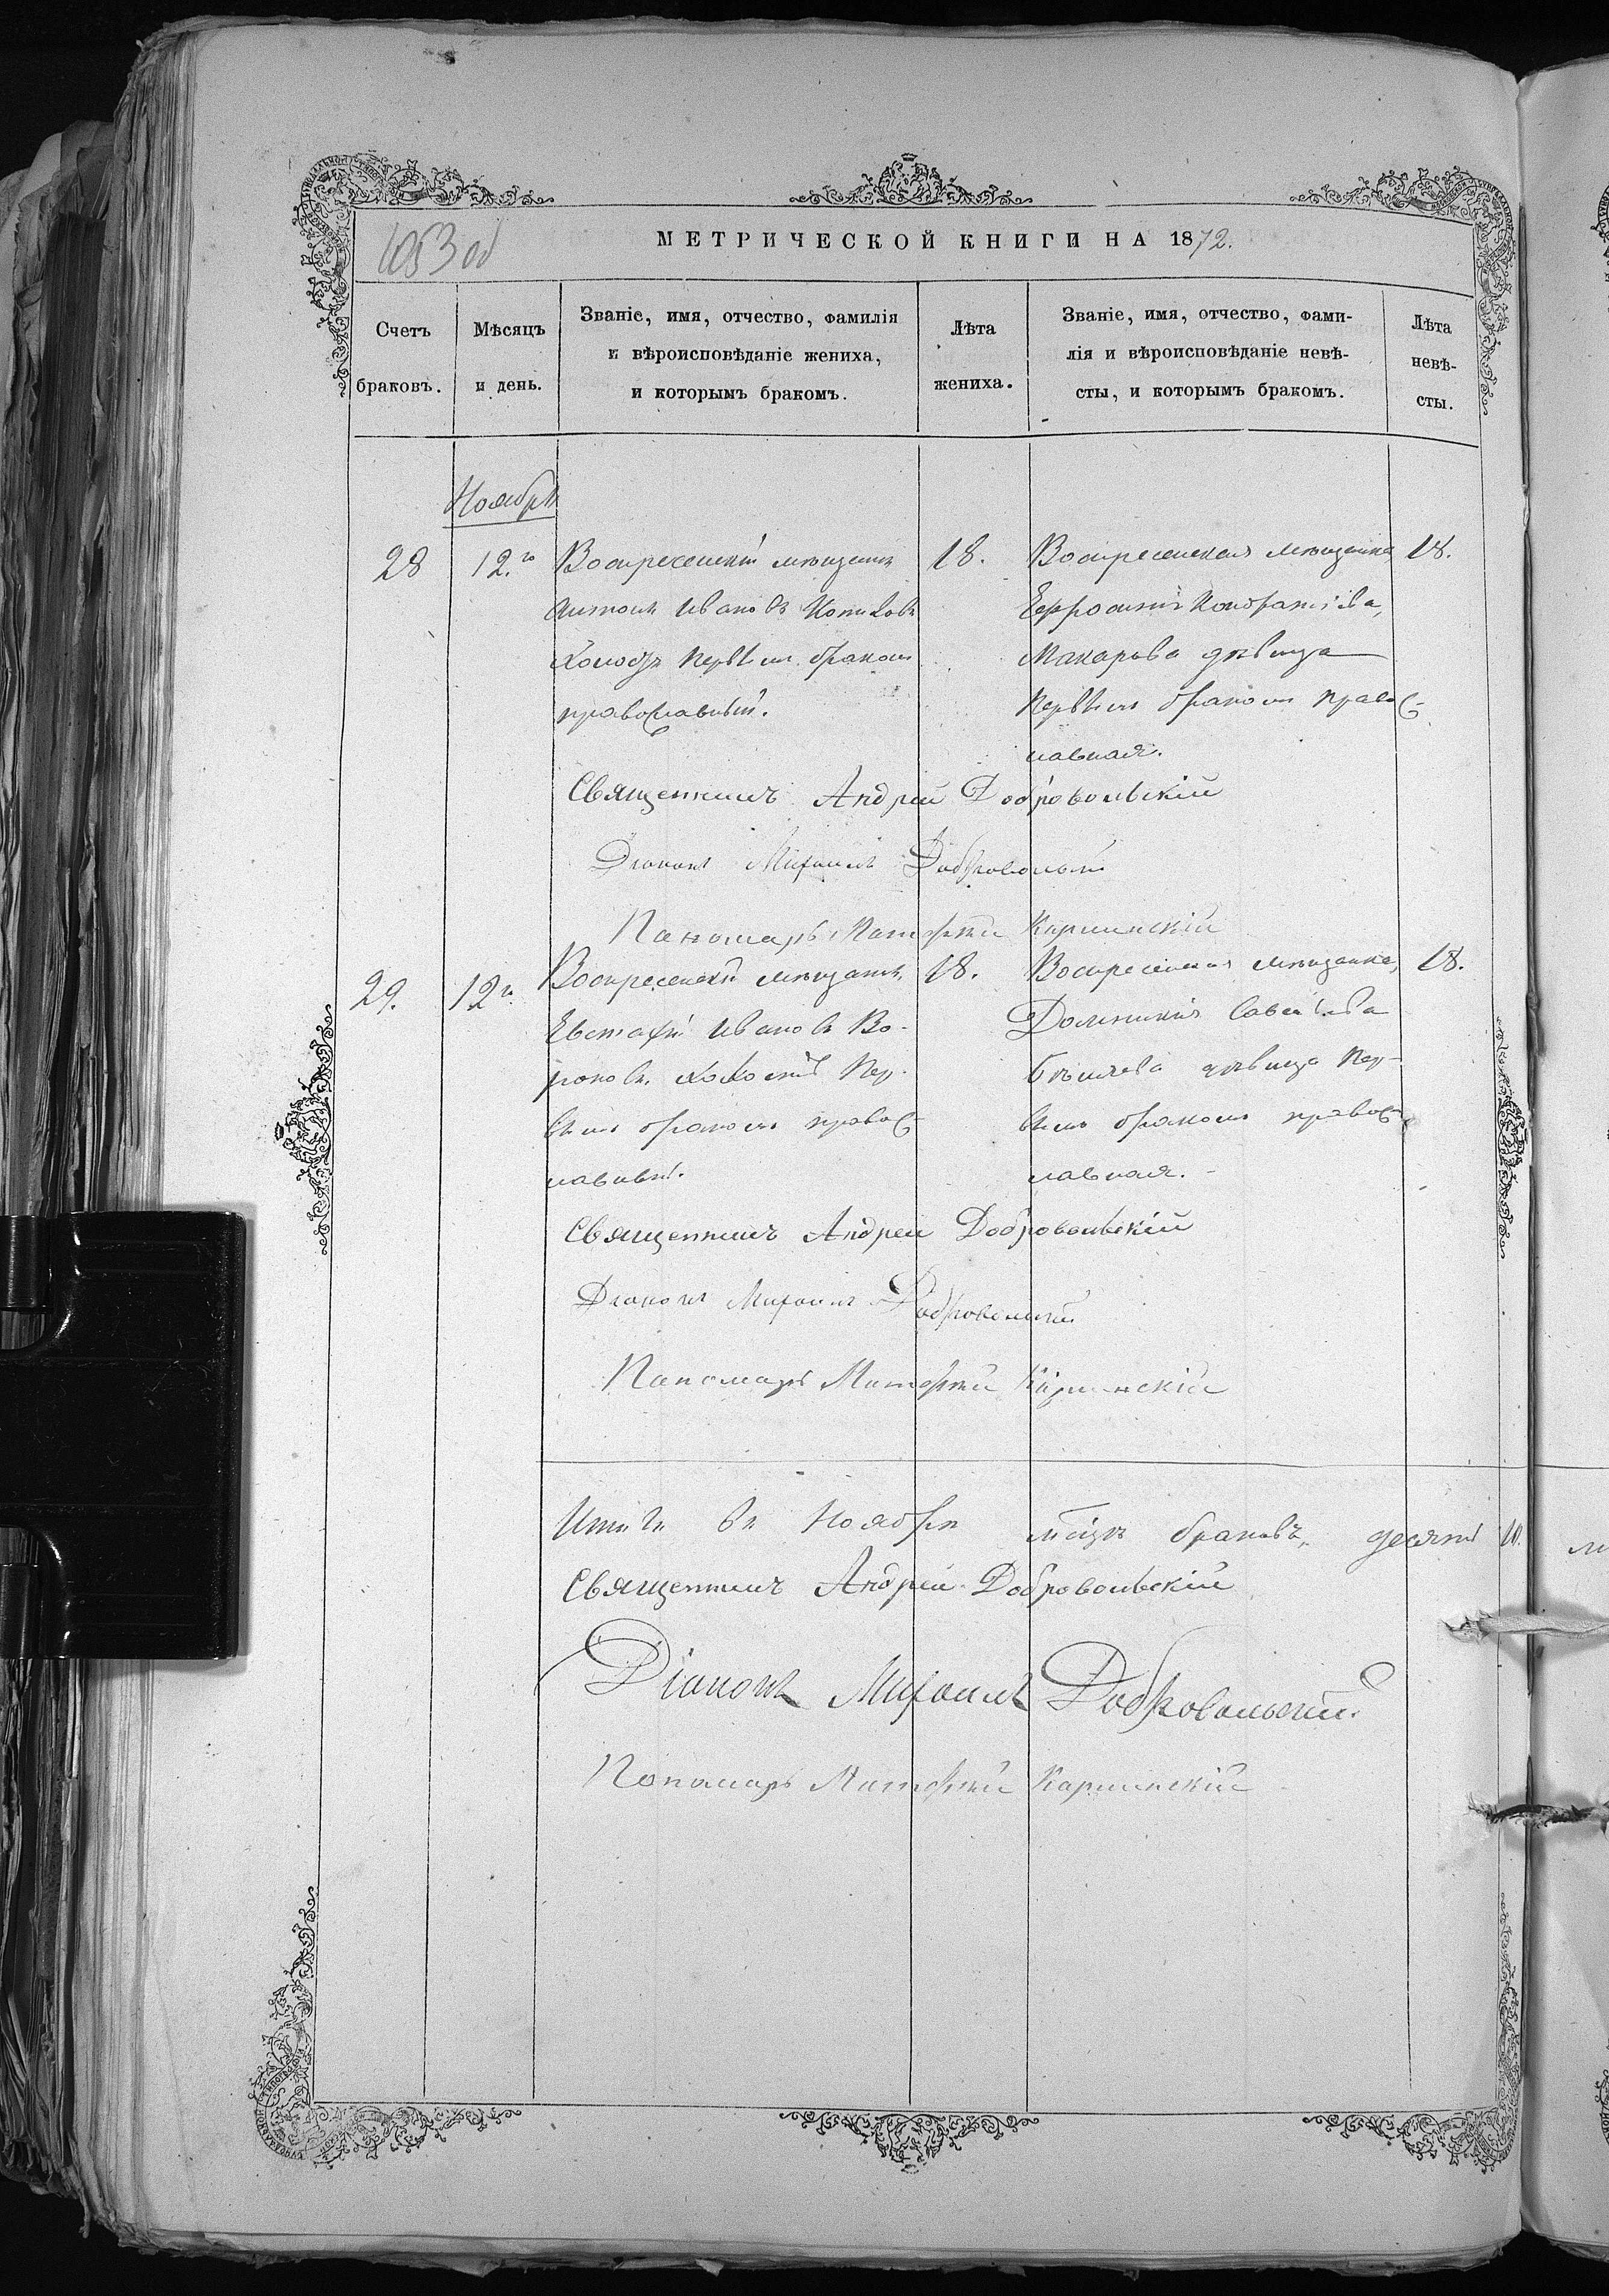 1053 об
МЕТРИЧЕСКОЙ КНИГИ НА 1872.
Счетъ браковъ.
Мѣсяцъ и день.
Званіе, имя, отчество, фамилія
и вѣроисповѣданіе жениха,
и которымъ бракомъ.
Лѣта жениха.
Званіе, имя, отчество, фами-
лія и вѣроисповѣданіе невѣ-
сты, и которымъ бракомъ.
Лѣта невѣ-
сты.
Ноябрь
28
12.го
Воскресенскій мѣщанинъ
Антонъ Ивановъ
холостъ первымъ бракомъ
православный.
18.
Воскресенская мѣщанка,
Ефросинія Кондратіева,
Макарова дѣвица
первымъ бракомъ правос-
лавная.
18.
Священникъ Андрей Добровольскій
Діаконъ Михаилъ Добровольскій
Пономарь Митрофанъ Карпинскій
29.
12го
Воскресенскій мѣщанинъ
Евстафій Ивановъ Во-
роновъ, холостъ пер-
вымъ бракомъ правос-
лавный.
18.
Воскресенская мѣщанка,
Домникія Савеліева
Бѣляева дѣвица пер-
вымъ бракомъ правос-
лавная.
18.
Священникъ Андрей Добровольскій
Діаконъ Михаилъ Добровольскій
Пономарь Карпинскій
Итого въ Ноябрѣ мѣсяцѣ браковъ, десять 10.
Священникъ Андрей Добровольскій
Діаконъ Михаилъ Добровольскій
Пономарь Карпинскій